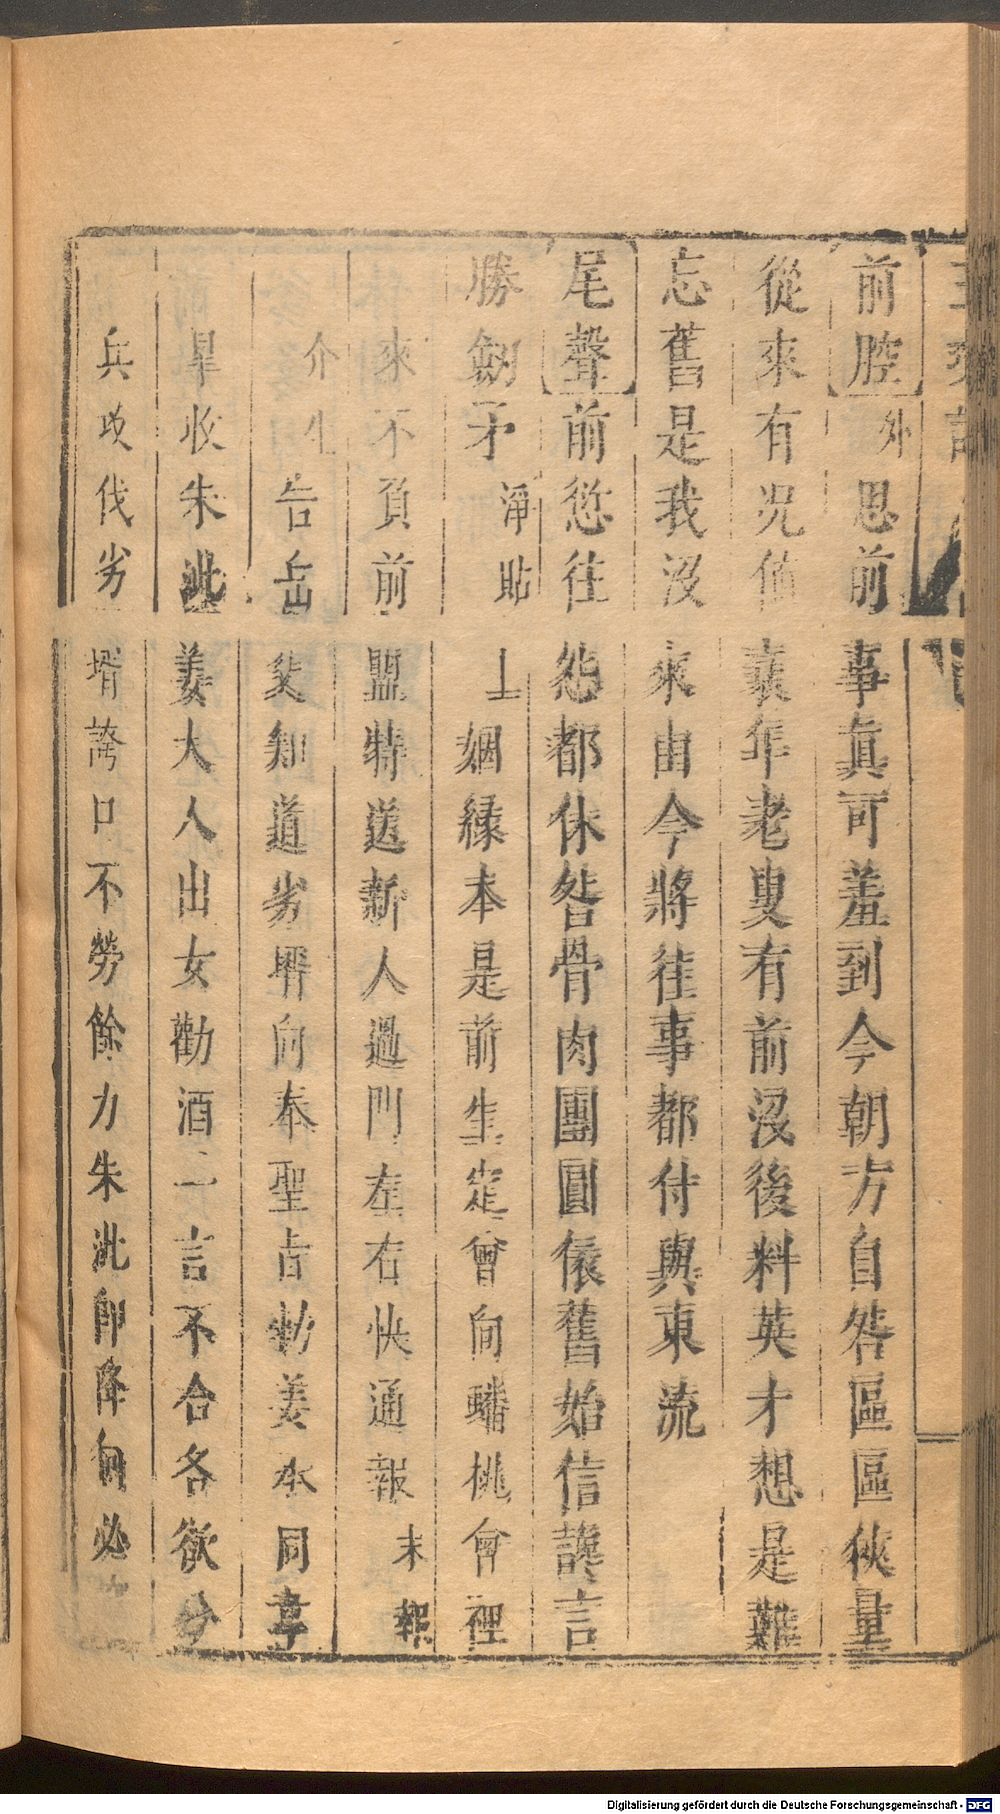 前腔 外 思前事眞可羞到今朝方自咎區區俠量
從來有况值衰年老叟有前没後料英才想是難
忘舊是我没來由今將徃事都付與東流
尾聲 前愆往怨都休咎骨肉團圓依舊始信讒言
勝劔矛 淨貼上 姻緣本是前生定曾向蟠桃會裡
來不負前盟特送新人過門左右快通報 末報
介生 告岳丈知道劣壻向奉聖旨勑姜本同韋
臯收朱泚姜大人出女勸酒一言不合各欲分
兵攻伐劣壻誇口不勞餘力朱泚卽降何必
Digitalisierung gefördert durch die Deutsche Forschungsgemeinschaft - DFG